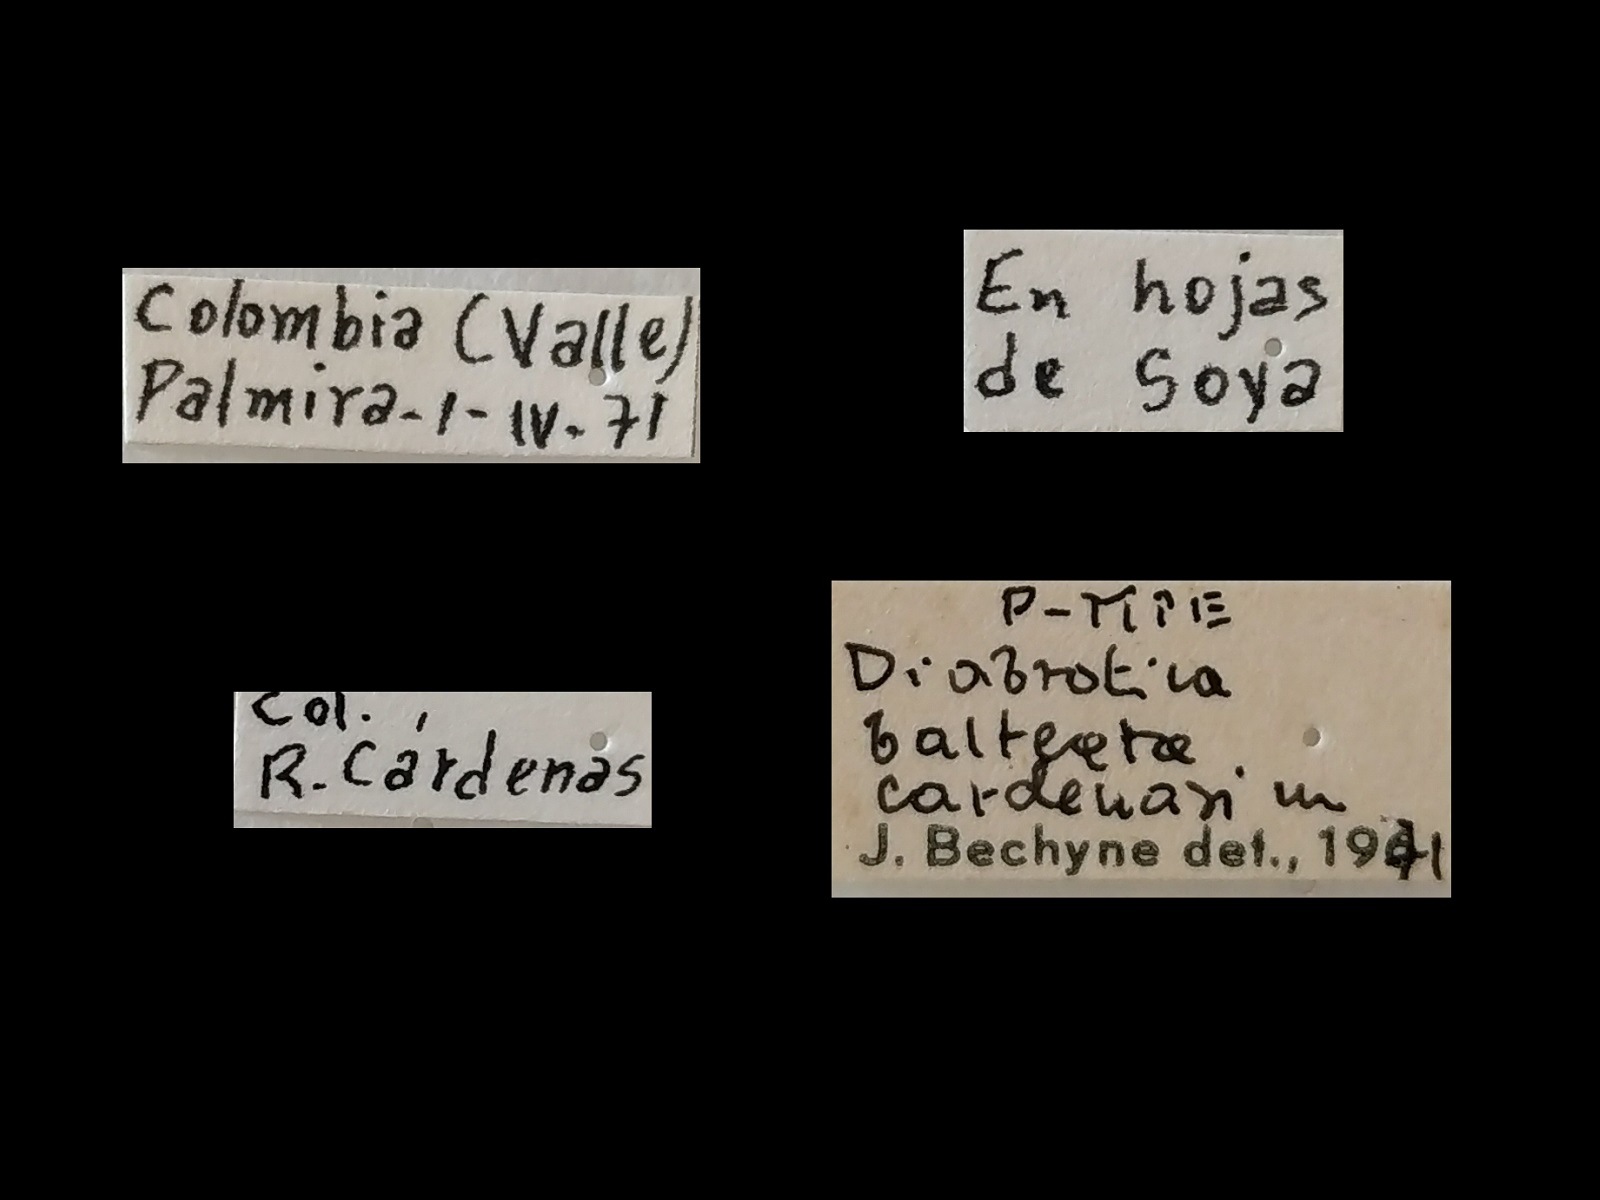 Colombia (Valle)
Palmira-1-IV-71
En hojas
de Soya
Col.
R. Cárdenas
P-TYPE
Diabrotica
balteata
cardenasi m
J. Bechyne det., 1971